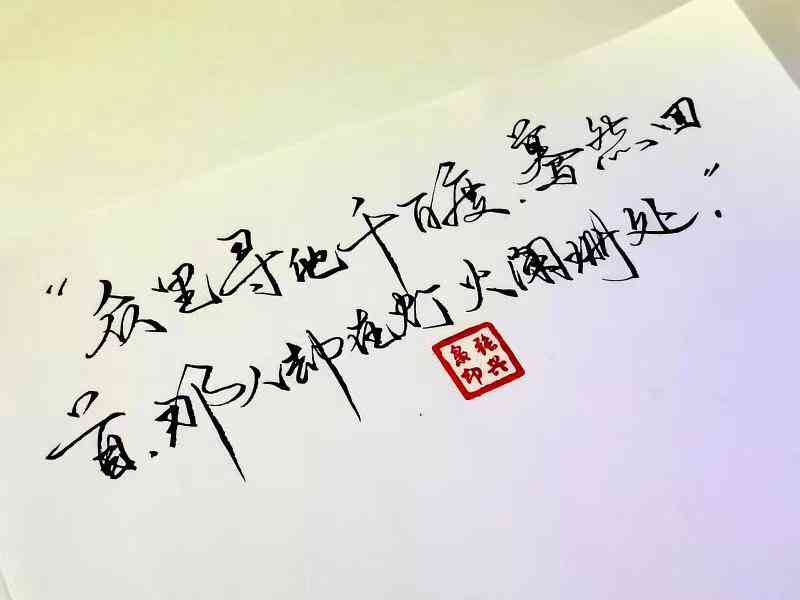 “众里寻他千百度.蓦然回
首.那人却在灯火阑珊处.”